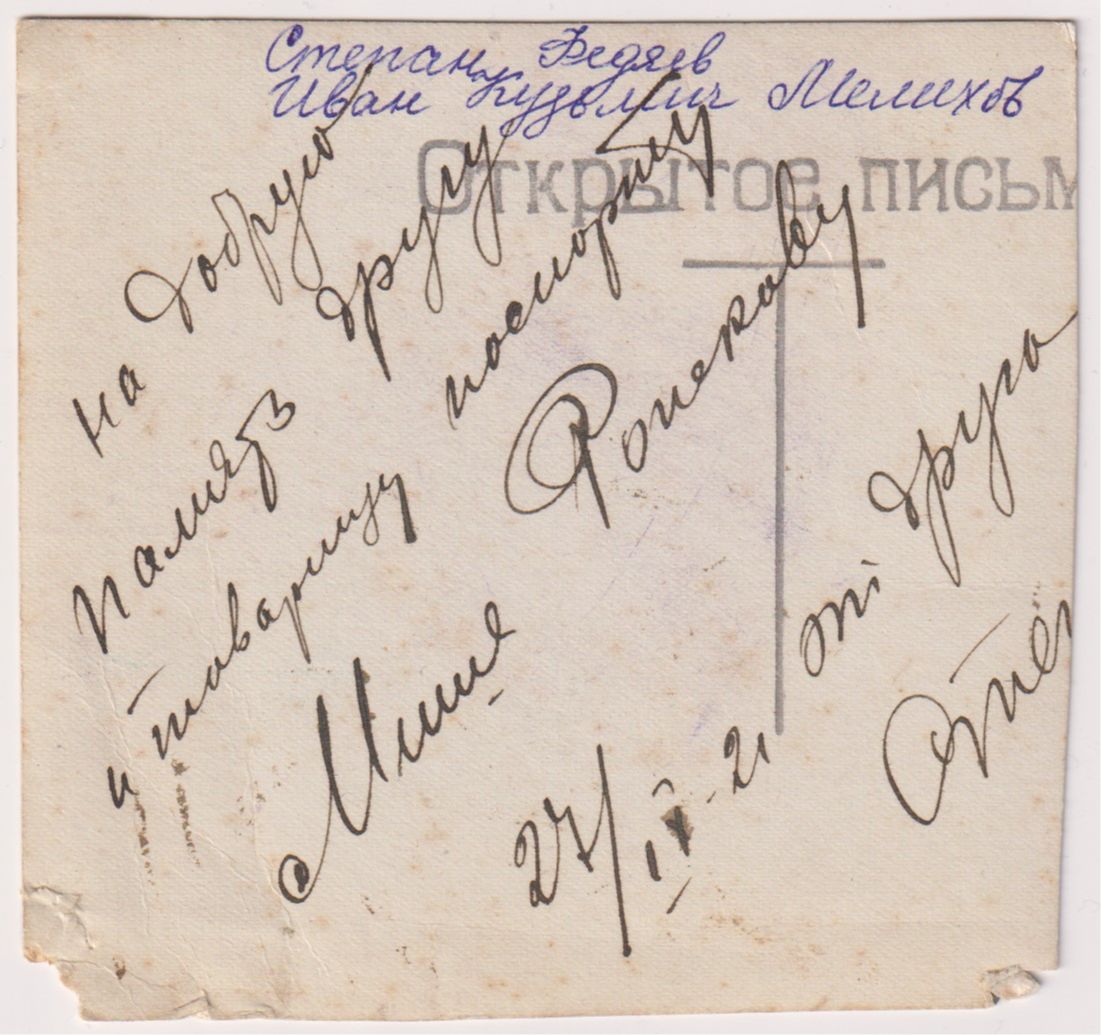 Степан Федяев
Иван Кузьмич Мелихов
Открытое письм
на добрую
память другу
и товарищу по спорту
Мише
27/IX-21
от друга